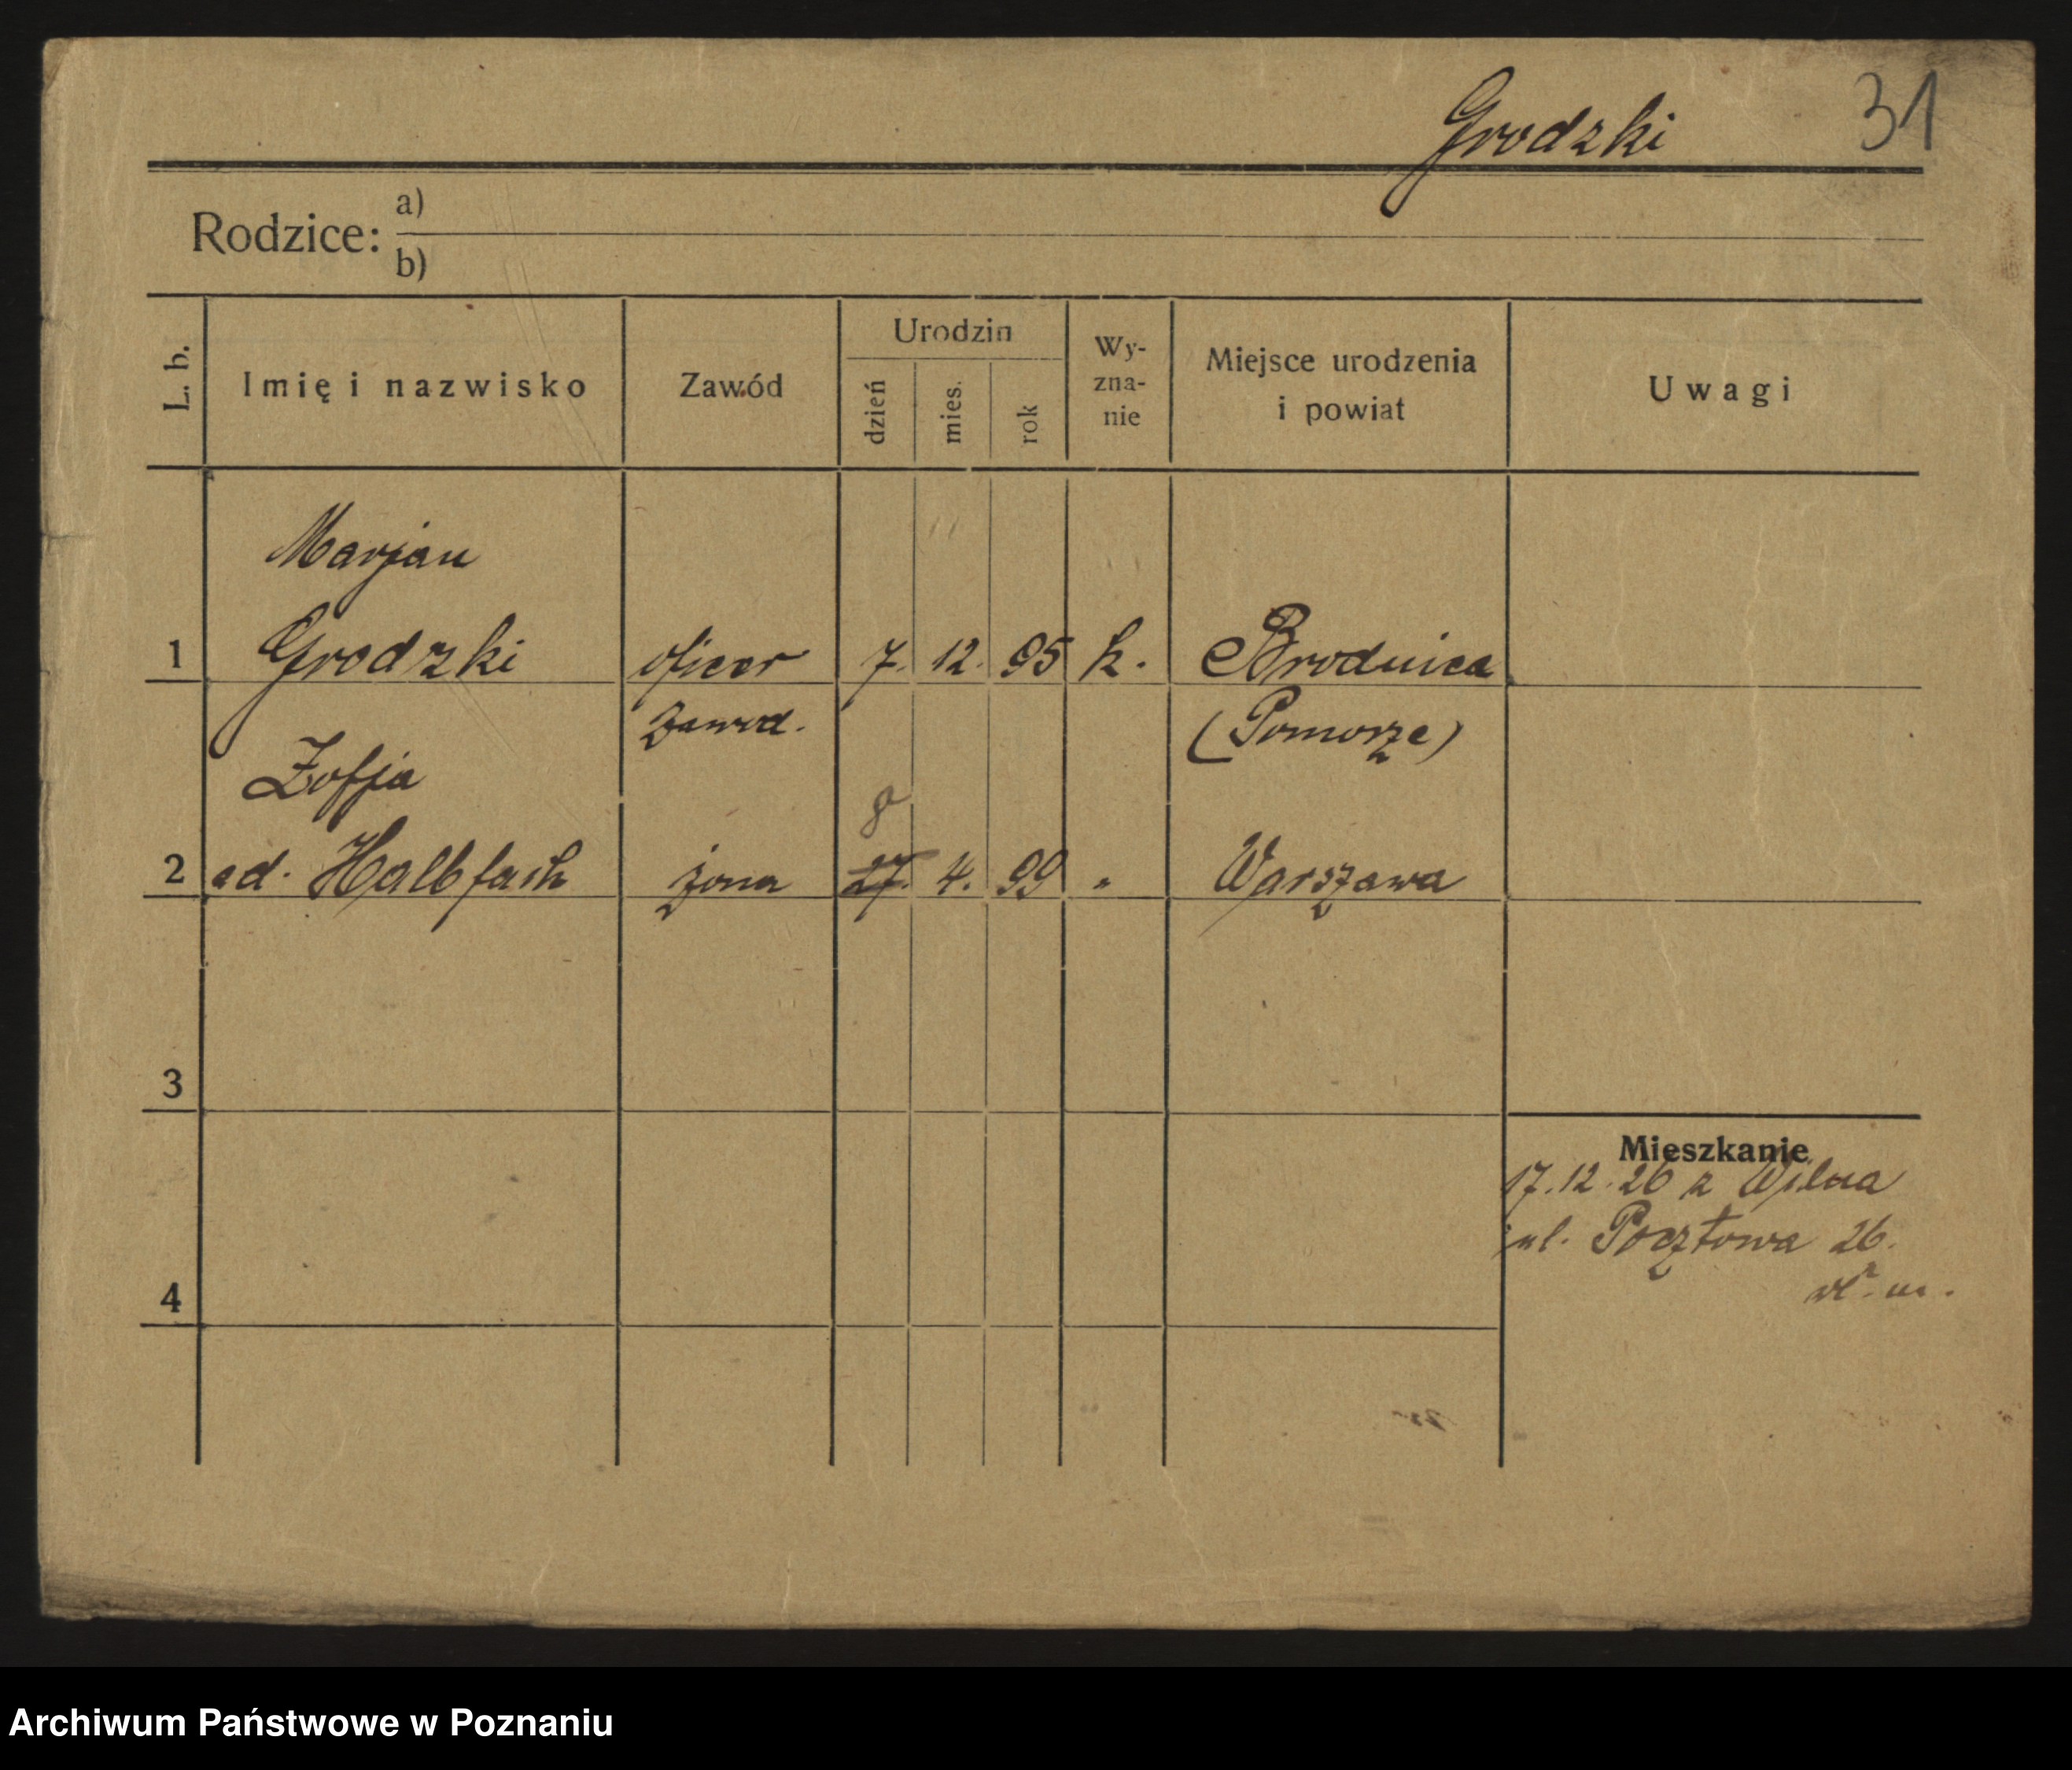 Grodzki 31
Rodzice: a)
b)
L. b. Imię i nazwisko Zawód Urodzin dzień mies. rok Wy-zna-nie Miejsce urodzenia i powiat Uwagi
Marjan
1 Grodzki oficer 7. 12. 95 k. Brodnica
zawod. (Pomorze)
Zofja
8
2 Halbfash żona 27. 4. 99 " Warszawa
3
Mieszkanie
17.12.26 z Wilna
ul. Pocztowa 26.
4
Archiwum Państwowe w Poznaniu